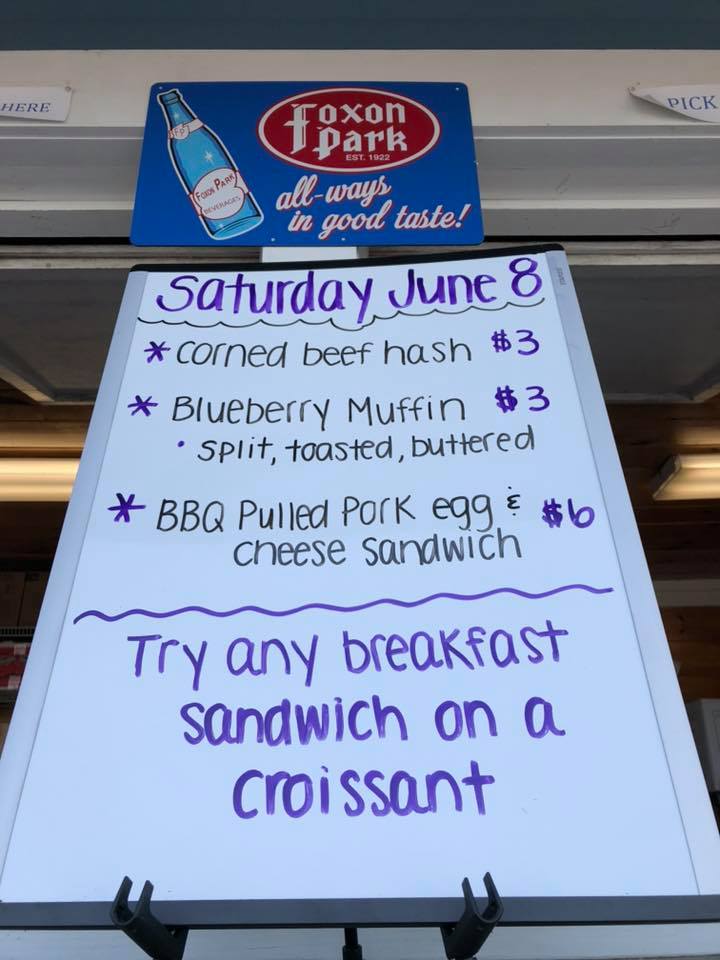 HERE
PICK
Foxon
Park
EST. 1922
FOXON PARK
BEVERAGES
all-ways
in good taste!
Saturday June 8
* corned beef hash $3
* Blueberry Muffin $3
• split, toasted, buttered
* BBQ Pulled Pork egg & $6
cheese sandwich
Try any breakfast
sandwich on a
croissant